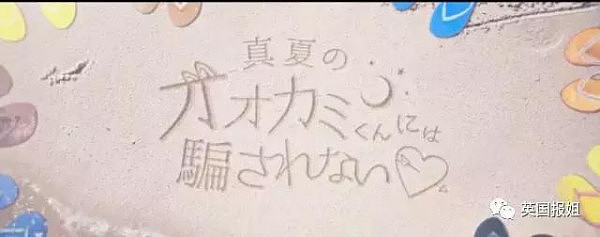 真夏の
オオカミくんには
騙されない♡
英国报姐